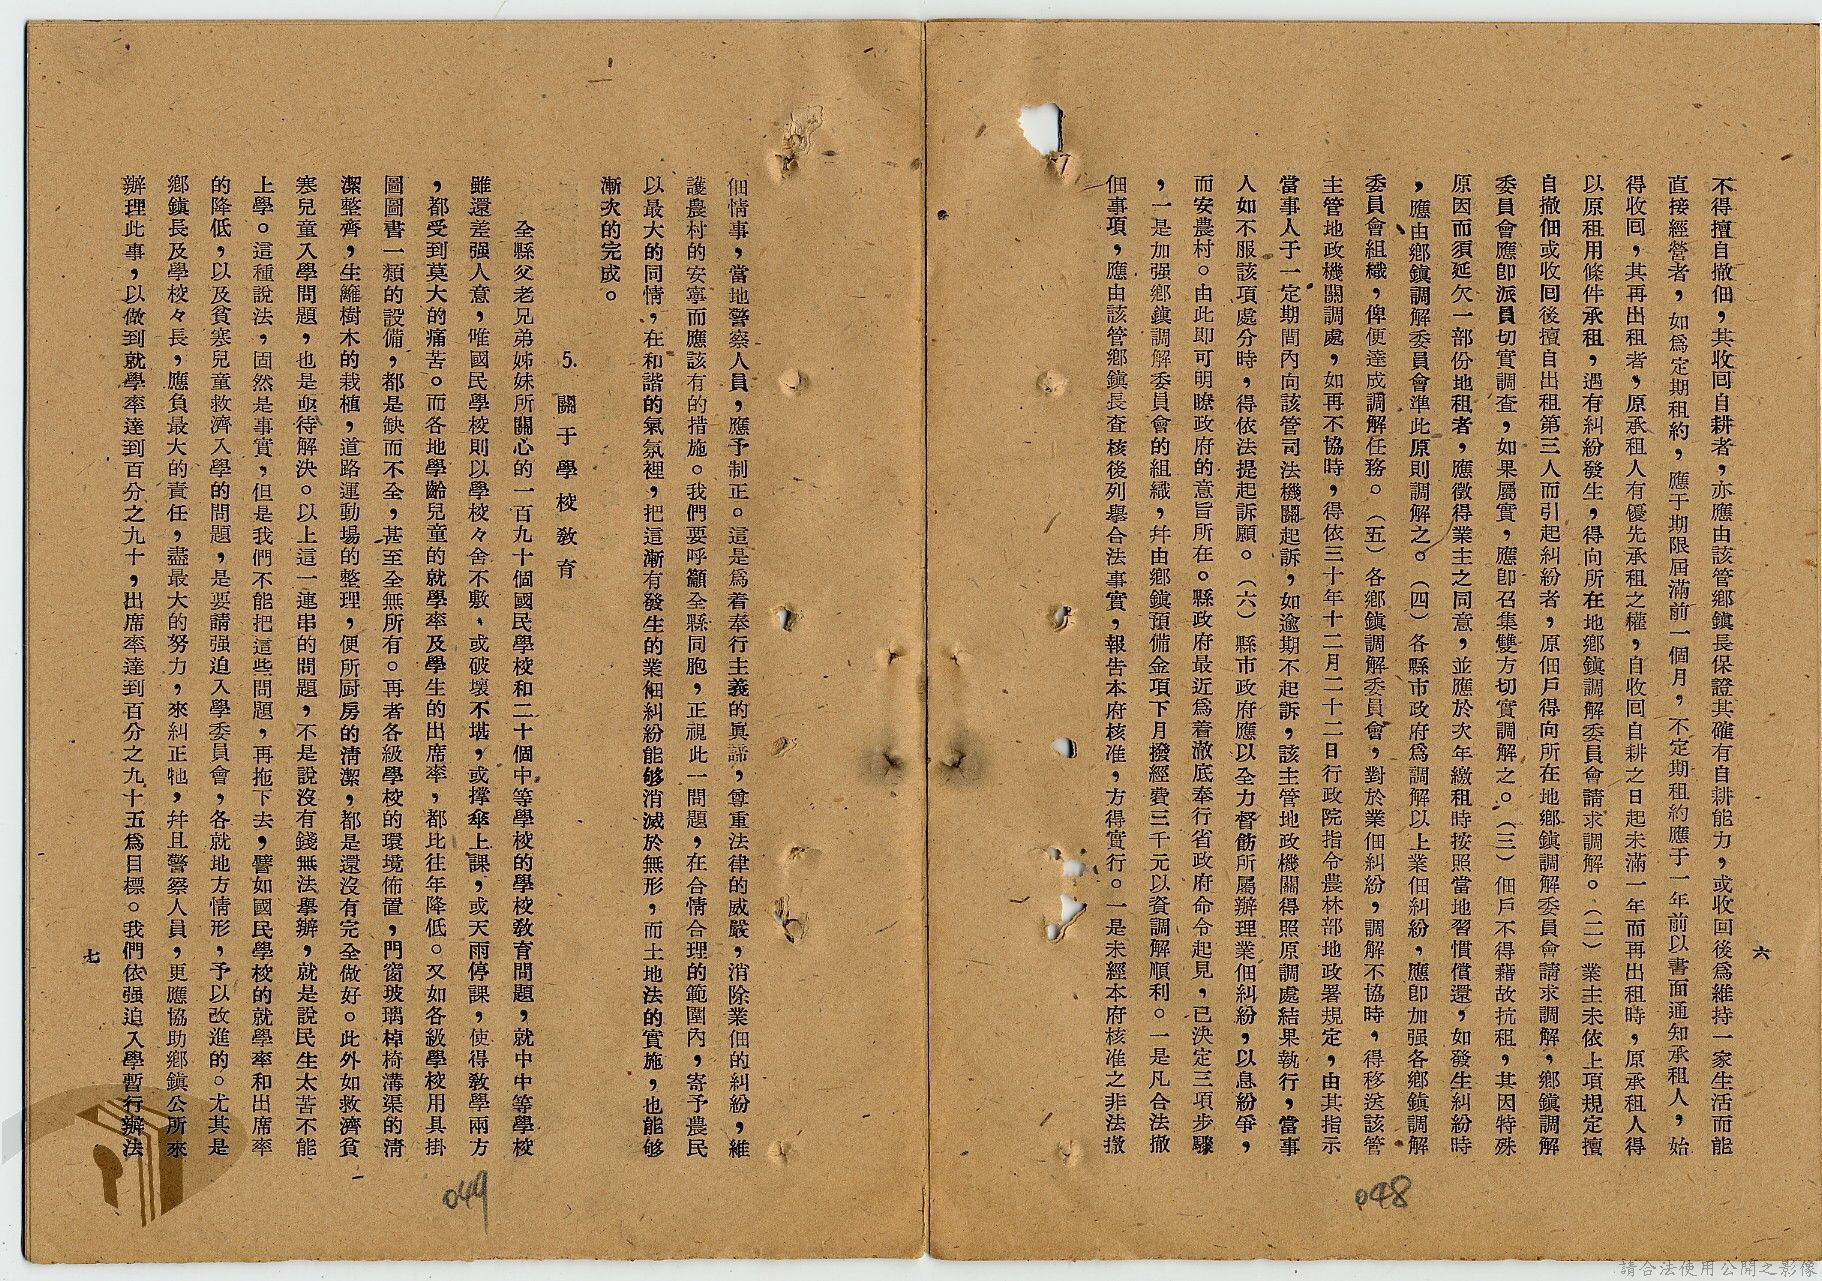 不得擅自撤佃，其收囘自耕者，亦應由該管鄉鎮長保證其確有自耕能力，或收回後爲維持一家生活而能
直接經營者，如爲定期租約，應于期限屆滿前一個月，不定期租約應于一年前以書面通知承租人，始
得收囘，其再出租者，原承租人有優先承租之權，自收囘自耕之日起未滿一年而再出租時，原承租人得
以原租用條件承租，遇有糾紛發生，得向所在地鄉鎮調解委員會請求調解。（二）業主未依上項規定擅
自撤佃或收囘後擅自出租第三人而引起糾紛者，原佃戶得向所在地鄉鎮調解委員會請求調解，鄉鎮調解
委員會應卽派員切實調查，如果屬實，應卽召集雙方切實調解之。（三）佃戶不得藉故抗租，其因特殊
原因而須延欠一部份地租者，應徵得業主之同意，並應於次年繳租時按照當地習慣償還，如發生糾紛時
，應由鄉鎮調解委員會準此原則調解之。（四）各縣市政府爲調解以上業佃糾紛，應卽加强各鄉鎮調解
委員會組織，俾便達成調解任務。（五）各鄉鎮調解委員會，對於業佃糾紛，調解不協時，得移送該管
主管地政機關調處，如再不協時，得依三十年十二月二十二日行政院指令農林部地政署規定，由其指示
當事人于一定期間內向該管司法機關起訴，如逾期不起訴，該主管地政機關得照原調處結果執行，當事
人如不服該項處分時，得依法提起訴願。（六）縣市政府應以全力督飭所屬辦理業佃糾紛，以息紛爭，
而安農村。由此即可明瞭政府的意旨所在。縣政府最近爲着澈底奉行省政府命令起見，已決定三項步驟
，一是加强鄉鎮調解委員會的組織，幷由鄉鎮預備金項下月撥經費三千元以資調解順利。一是凡合法撤
佃事項，應由該管鄉鎮長查核後列擧合法事實，報告本府核准，方得實行。一是未經本府核准之非法撤
六
048
佃情事，當地警察人員，應予制正。這是爲着奉行主義的眞諦，尊重法律的威嚴，消除業佃的糾紛，維
護農村的安寧而應該有的措施。我們要呼籲全縣同胞，正視此一問題，在合情合理的範圍內，寄予農民
以最大的同情，在和諧的氣氛裡，把這漸有發生的業佃糾紛能够消滅於無形，而土地法的實施，也能够
漸次的完成。
5. 關于學校敎育
全縣父老兄弟姊妹所關心的一百九十個國民學校和二十個中等學校的學校敎育問題，就中中等學校
雖還差强人意，唯國民學校則以學校々舍不敷、或破壞不堪，或撑傘上課，或天雨停課，使得敎學兩方
，都受到莫大的痛苦。而各地學齡兒童的就學率及學生的出席率，都比往年降低。又如各級學校用具掛
圖圖書一類的設備，都是缺而不全，甚至全無所有。再者各級學校的環境佈置，門窗玻璃棹椅溝渠的淸
潔整齊，生籬樹木的栽植，道路運動場的整理，便所厨房的淸潔，都是還沒有完全做好。此外如救濟貧
寒兒童入學問題，也是亟待解決。以上這一連串的問題，不是說沒有錢無法擧辦，就是說民生太苦不能
上學。這種說法，固然是事實，但是我們不能把這些問題，再拖下去，譬如國民學校的就學率和出席率
的降低，以及貧寒兒童救濟入學的問題，是要請强迫入學委員會，各就地方情形，予以改進的。尤其是
鄉鎮長及學校々長，應負最大的責任，盡最大的努力，來糾正牠，幷且警察人員，更應協助鄉鎮公所來
辦理此事，以做到就學率達到百分之九十，出席率達到百分之九十五爲目標。我們依强迫入學暫行辦法
七
049
請合法使用公開之影像